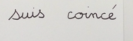 suis coincé